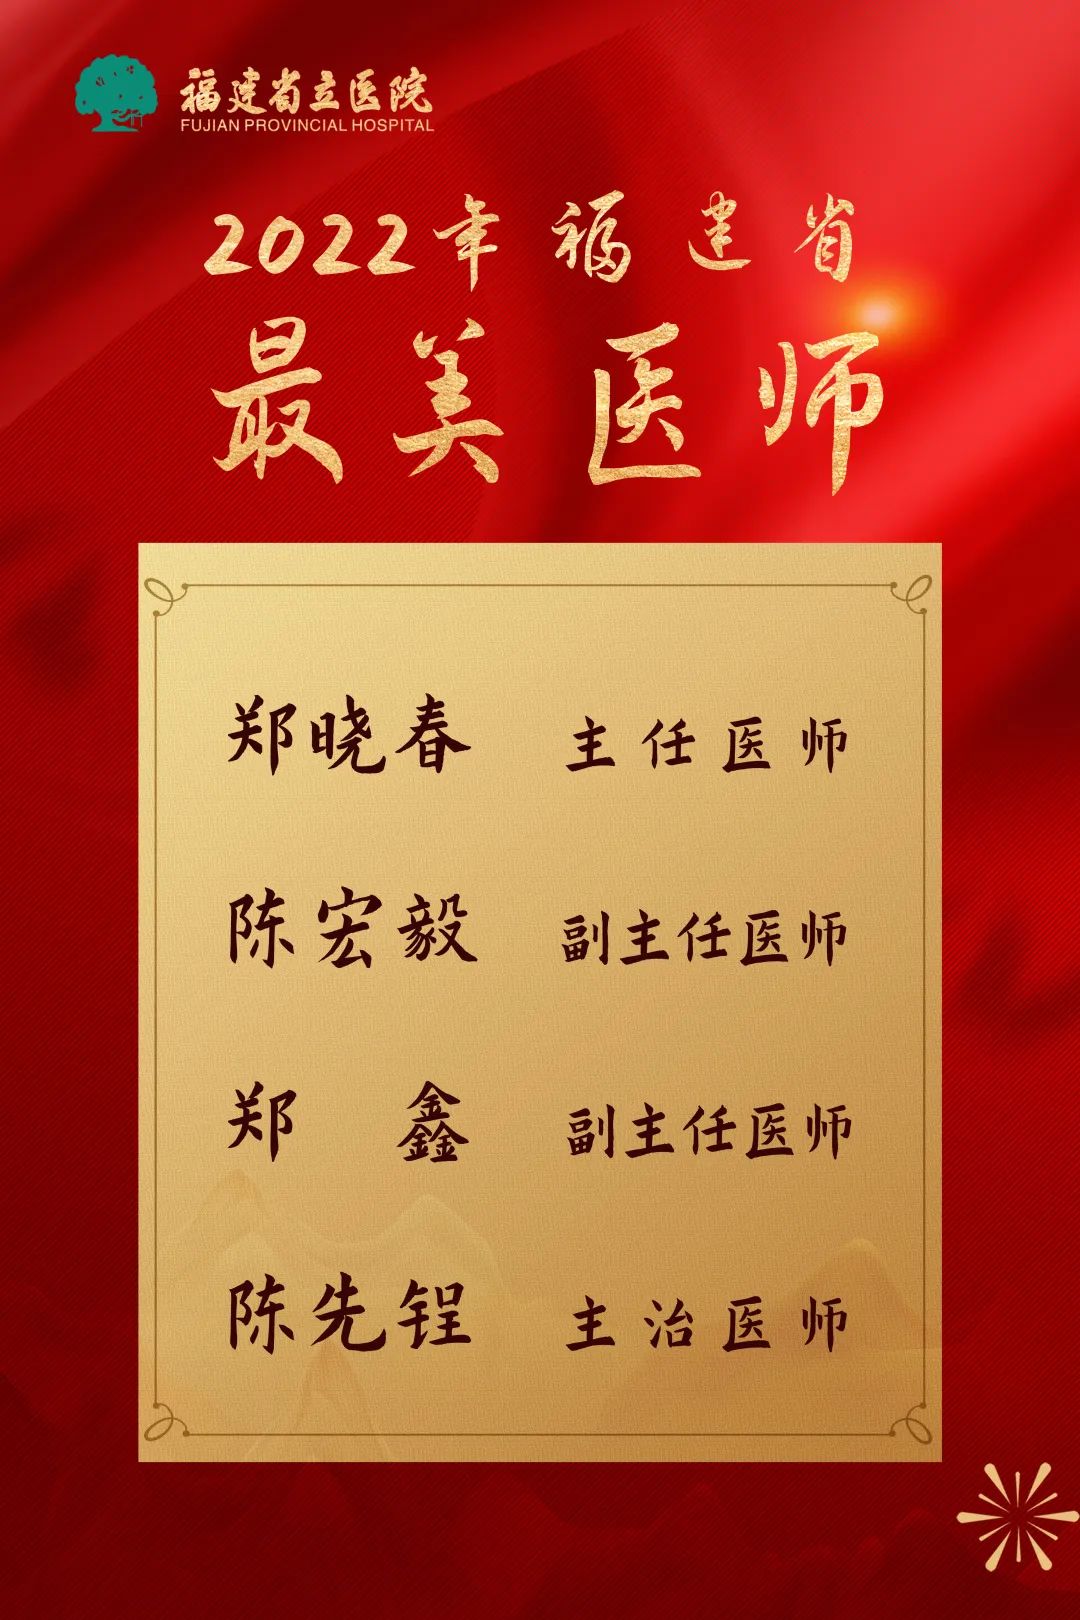 福建省立医院
FUJIAN PROVINCIAL HOSPITAL
2022年福建省
最美医师
郑晓春 主任医师
陈宏毅 副主任医师
郑鑫 副主任医师
陈先锃 主治医师